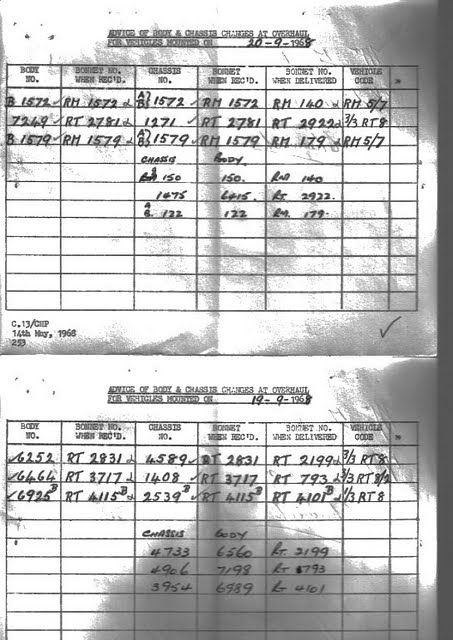 ADVICE OF BODY & CHASSIS CHANGES AT OVERHAUL
FOR VEHICLES MOUNTED ON 20-9-1968
BODY NO. BONNET NO. WHEN REC'D. CHASSIS NO. BONNET WHEN REC'D. BONNET NO. WHEN DELIVERED VEHICLE CODE
B 1572 ✓ RM 1572 A/B 1572 RM 1572 RM 140 RM 5/7
7249 ✓ RT 2781 1271 ✓ RT 2781 RT 2922 3/3 RT8
B 1579 ✓ RM 1579 A/B 1579 RM 1579 RM 179 RM 5/7
CHASSIS BODY
150 150. RM 140
1475 6415. RT 2922.
A/B 122 122 RM 179.
C.13/CHP
14th May, 1968
253
✓
ADVICE OF BODY & CHASSIS CHANGES AT OVERHAUL
FOR VEHICLES MOUNTED ON 19-9-1968
BODY NO. BONNET NO. WHEN REC'D. CHASSIS NO. BONNET WHEN REC'D. BONNET NO. WHEN DELIVERED VEHICLE CODE
✓6252 RT 2831 4589 ✓ RT 2831 RT 2199 3/3 RT8
✓6464 RT 3717 1408 ✓ RT 3717 RT 793 3/3 RT8/2
✓6925 B RT 4115 B 2539 B ✓ RT 4115 B RT 4101 B 1/3 RT8
CHASSIS BODY
4733 6560 RT 2199
4906 7198 RT 793
3954 6989 RT 4101